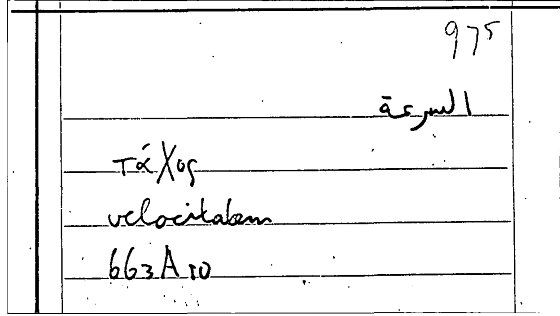 975
السرعة
τάχος
velocitatem
663A10